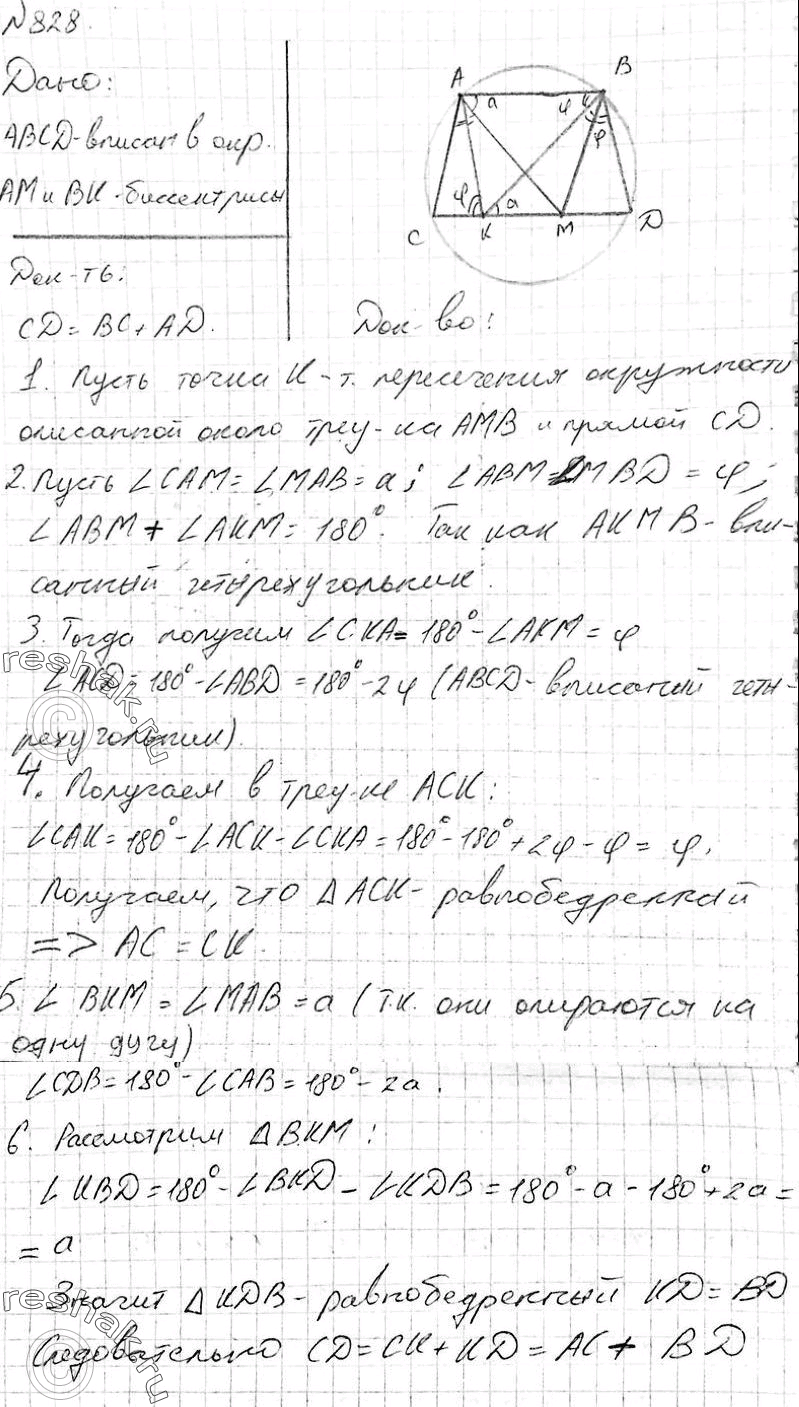 №828.
Дано:
ABCD-вписан в окр.
AM и BK-биссектрисы
Док-ть:
CD = BC + AD.
A
B
a
φ
φ
φ
a
C
K
M
D
Док-во:
1. Пусть точка K-т. пересечения окружности
описанной около треу-ка AMB и прямой CD.
2. Пусть ∠CAM = ∠MAB = a; ∠ABM = ∠MBD = φ;
∠ABM + ∠AKM = 180°. Так как AKMB-впи-
санный четырехугольник.
3. Тогда получим ∠CKA = 180° - ∠AKM = φ
∠ACD = 180° - ∠ABD = 180° - 2φ (ABCD-вписаный четы-
рехугольник).
4. Получаем в треу-ке ACK:
∠CAK = 180° - ∠ACK - ∠CKA = 180° - 180° + 2φ - φ = φ.
Получаем, что △ACK-равнобедренный
=> AC = CK.
5. ∠BKM = ∠MAB = a (т.к. они опираются на
одну дугу)
∠CDB = 180° - ∠CAB = 180° - 2a.
6. Рассмотрим △BKM:
∠KBD = 180° - ∠BKD - ∠KDB = 180° - a - 180° + 2a =
= a
Значит △KDB-равнобедренный KD = BD
Следовательно CD = CK + KD = AC + BD
reshak.ru
©
reshak.ru
©